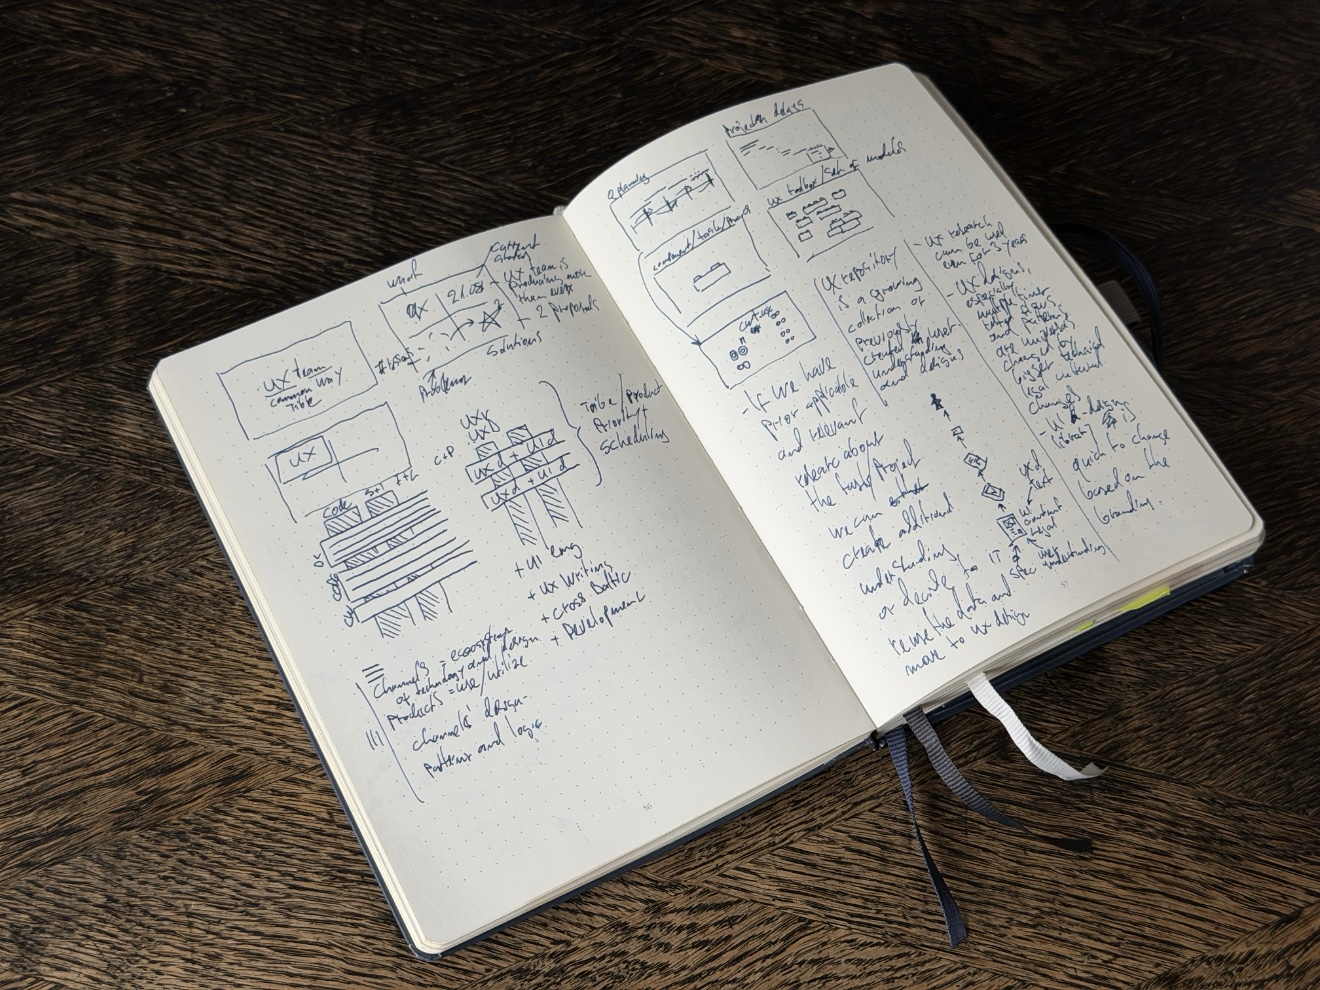 what
current
status
UX team
common way
Tribe
UX
21.03
- UX team is
producing more
than ever
- 2 proposals
Solutions
Problems
UX
code
C+P
UXr
UXr
UXd + UId
UXd + UId
Tribe/Product
Priority +
Scheduling
+ UI eng
+ UX Writing
+ Cross Baltic
+ Development
Channels = ecosystem
of technology and design
Products = use/utilize
channels' design
patterns and logic
56
Q planning
Projects details
component/task/
UX toolbox/set of models
- If we have
prior applicable
and relevant
research about
the task/project
we can
create additional
understanding
or decide to
reuse the data and
move to UX design
UX repository
is a growing
collection of
previously
created user
understanding
and designs
uxd
test
UI
content
legal
user
understanding
IT
spec
- UX research
can be used
even for 3 years
- UX designs,
especially
multiple times
tested flows
and patterns
are
changed
bigger technical
legal
channel
- UI designing
is
quick to change
based on the
branding.
57